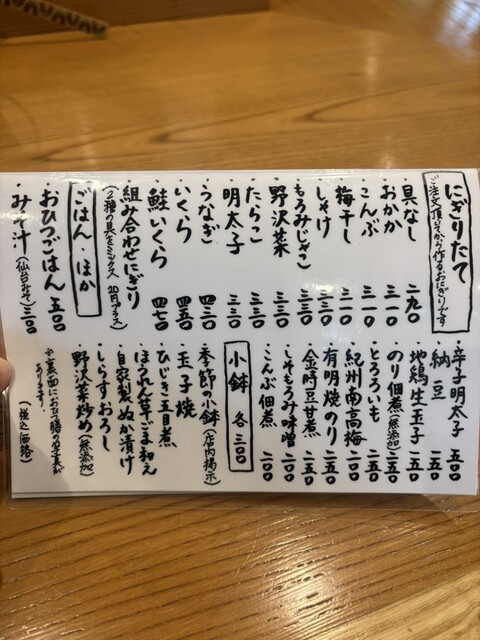 にぎりたて
ご注文頂いてから作るおにぎりです
・具なし 二九〇
・おかか 三一〇
・こんぶ 三一〇
・梅干し 三一〇
・しゃけ 三三〇
・もろみじゃこ 三三〇
・野沢菜 三三〇
・たらこ 三三〇
・明太子 三三〇
・うなぎ 四三〇
・いくら 四五〇
・鮭いくら 四七〇
・組み合わせにぎり
(2種の具をミックス 20円プラス)
ごはん ほか
・おひつごはん 五〇〇
・みそ汁(仙台みそ) 三〇〇
・辛子明太子 五〇〇
・納豆 二五〇
・地鶏生玉子 二五〇
・のり佃煮(無添加) 二五〇
・とろろいも 二五〇
・紀州南高梅 二五〇
・有明焼のり 二五〇
・金時豆甘煮 二〇〇
・しそもろみ味噌 二〇〇
・こんぶ佃煮 二〇〇
小鉢 各 三〇〇
・季節の小鉢(店内掲示)
・玉子焼
・ひじき五目煮
・ほうれん草ごま和え
・自家製ぬか漬け
・しらすおろし
・野沢菜炒め(無添加)
※裏面におひつ膳の写真が
あります。
(税込価格)